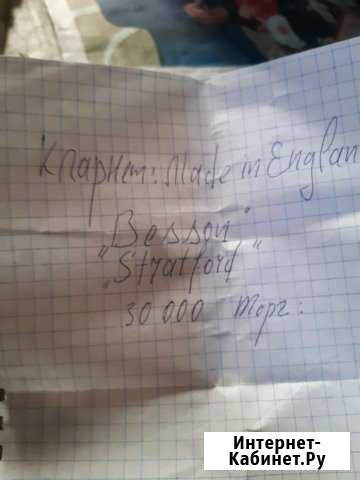 Кларнет: Made in Englan
"Besson"
"Stratford"
30 000 торг:
Интернет-
Кабинет.Ру